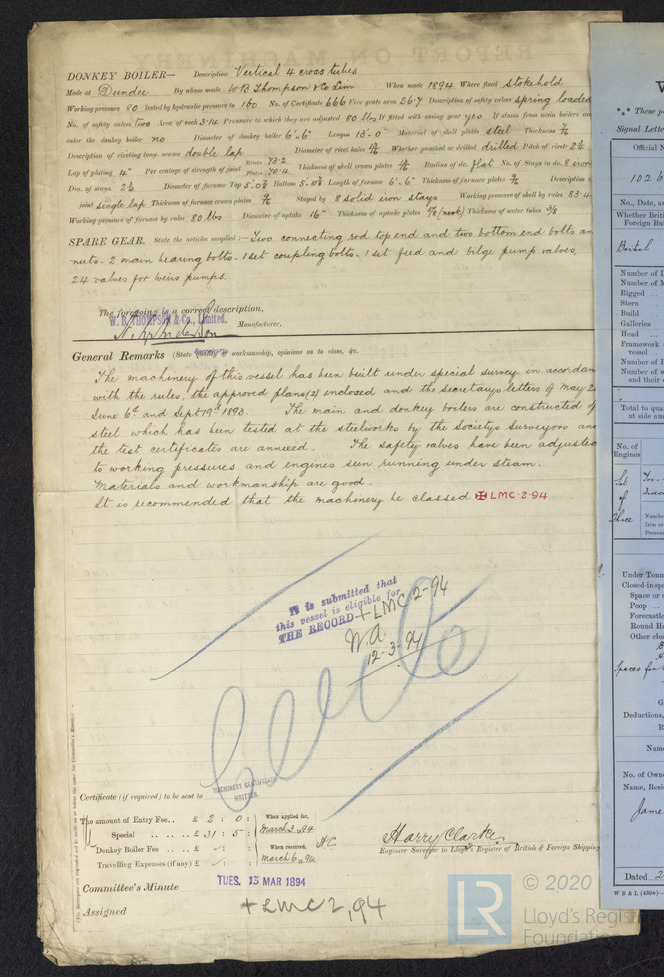 DONKEY BOILER— Description Vertical 4 cross tubes
Made at Dundee By whom made W B Thompson & Co Lim When made 1894 Where fixed Stokehold
Working pressure 80 tested by hydraulic pressure to 160 No. of Certificate 666 Fire grate area 26.7 Description of safety valves spring loaded
No. of safety valves two Area of each 3.14 Pressure to which they are adjusted 80 lbs If fitted with easing gear yes If steam from main boilers can
enter the donkey boiler no Diameter of donkey boiler 6'.6" Length 13'.0" Material of shell plates steel Thickness
Description of riveting long. seams double lap Diameter of rivet holes Whether punched or drilled drilled Pitch of rivets 2½
Lap of plating 4" Per centage of strength of joint Rivets 73.2 Plates 70.4 Thickness of shell crown plates Radius of do. flat No. of Stays to do. 8 iron
Dia. of stays. 2½ Diameter of furnace Top Bottom Length of furnace 6'.6" Thickness of furnace plates Description of
joint single lap Thickness of furnace crown plates Stayed by 8 solid iron stays Working pressure of shell by rules 83.4
Working pressure of furnace by rules 80 lbs Diameter of uptake 16" Thickness of uptake plates Thickness of water tubes 3/8
SPARE GEAR. State the articles supplied:— Two connecting rod top end and two bottom end bolts an
nuts. 2 main bearing bolts. 1 set coupling bolts. 1 set feed and bilge pump valves,
24 valves for weirs pumps.
The foregoing is a correct description,
W. B. THOMPSON & Co., Limited.
Manufacturer.
General Remarks (State quality of workmanship, opinions as to class, &c.
The machinery of this vessel has been built under special survey in accordan
with the rules, the approved plans (2) enclosed and the secretarys letters of May 2
June 6th and Sept 19th 1893. The main and donkey boilers are constructed of
steel which has been tested at the steelworks by the Societys Surveyors and
the test certificates are annexed. The safety valves have been adjusted
to working pressures and engines seen running under steam.
Materials and workmanship are good.
It is recommended that the machinery be classed ✠ LMC 2.94
It is submitted that
this vessel is eligible for
THE RECORD + LMC 2-94
W.A.
12.3.94
Certificate (if required) to be sent to
MACHINERY CERTIFICATE
WRITTEN
The amount of Entry Fee.. £ 2 : 0 : When applied for,
Special .. .. .. £ 31 : 5 : March 3.94
Donkey Boiler Fee .. £ : When received,
Travelling Expenses (if any) £ : March 6.94
Harry Clarke
Engineer Surveyor to Lloyd's Register of British & Foreign Shipping
Committee's Minute TUES. 13 MAR 1894
Assigned + LMC 2,94
These p
Signal Lette
Official N
102 6
No., Date, a
Whether Briti
Foreign Bu
British
Number of D
Number of M
Rigged
Stern
Build
Galleries
Head
Framework
vessel
Number of
Number of w
and their
Total to qua
at side am
No. of
Engines
Three
Under Tonn
Closed-in sp
Space or
Poop
Forecastle
Round H
Other clo
Spaces for
Deductions,
Nam
No. of Own
Name, Resi
Jame
Dated 2
LR
© 2020
Lloyd's Regist
Foundation